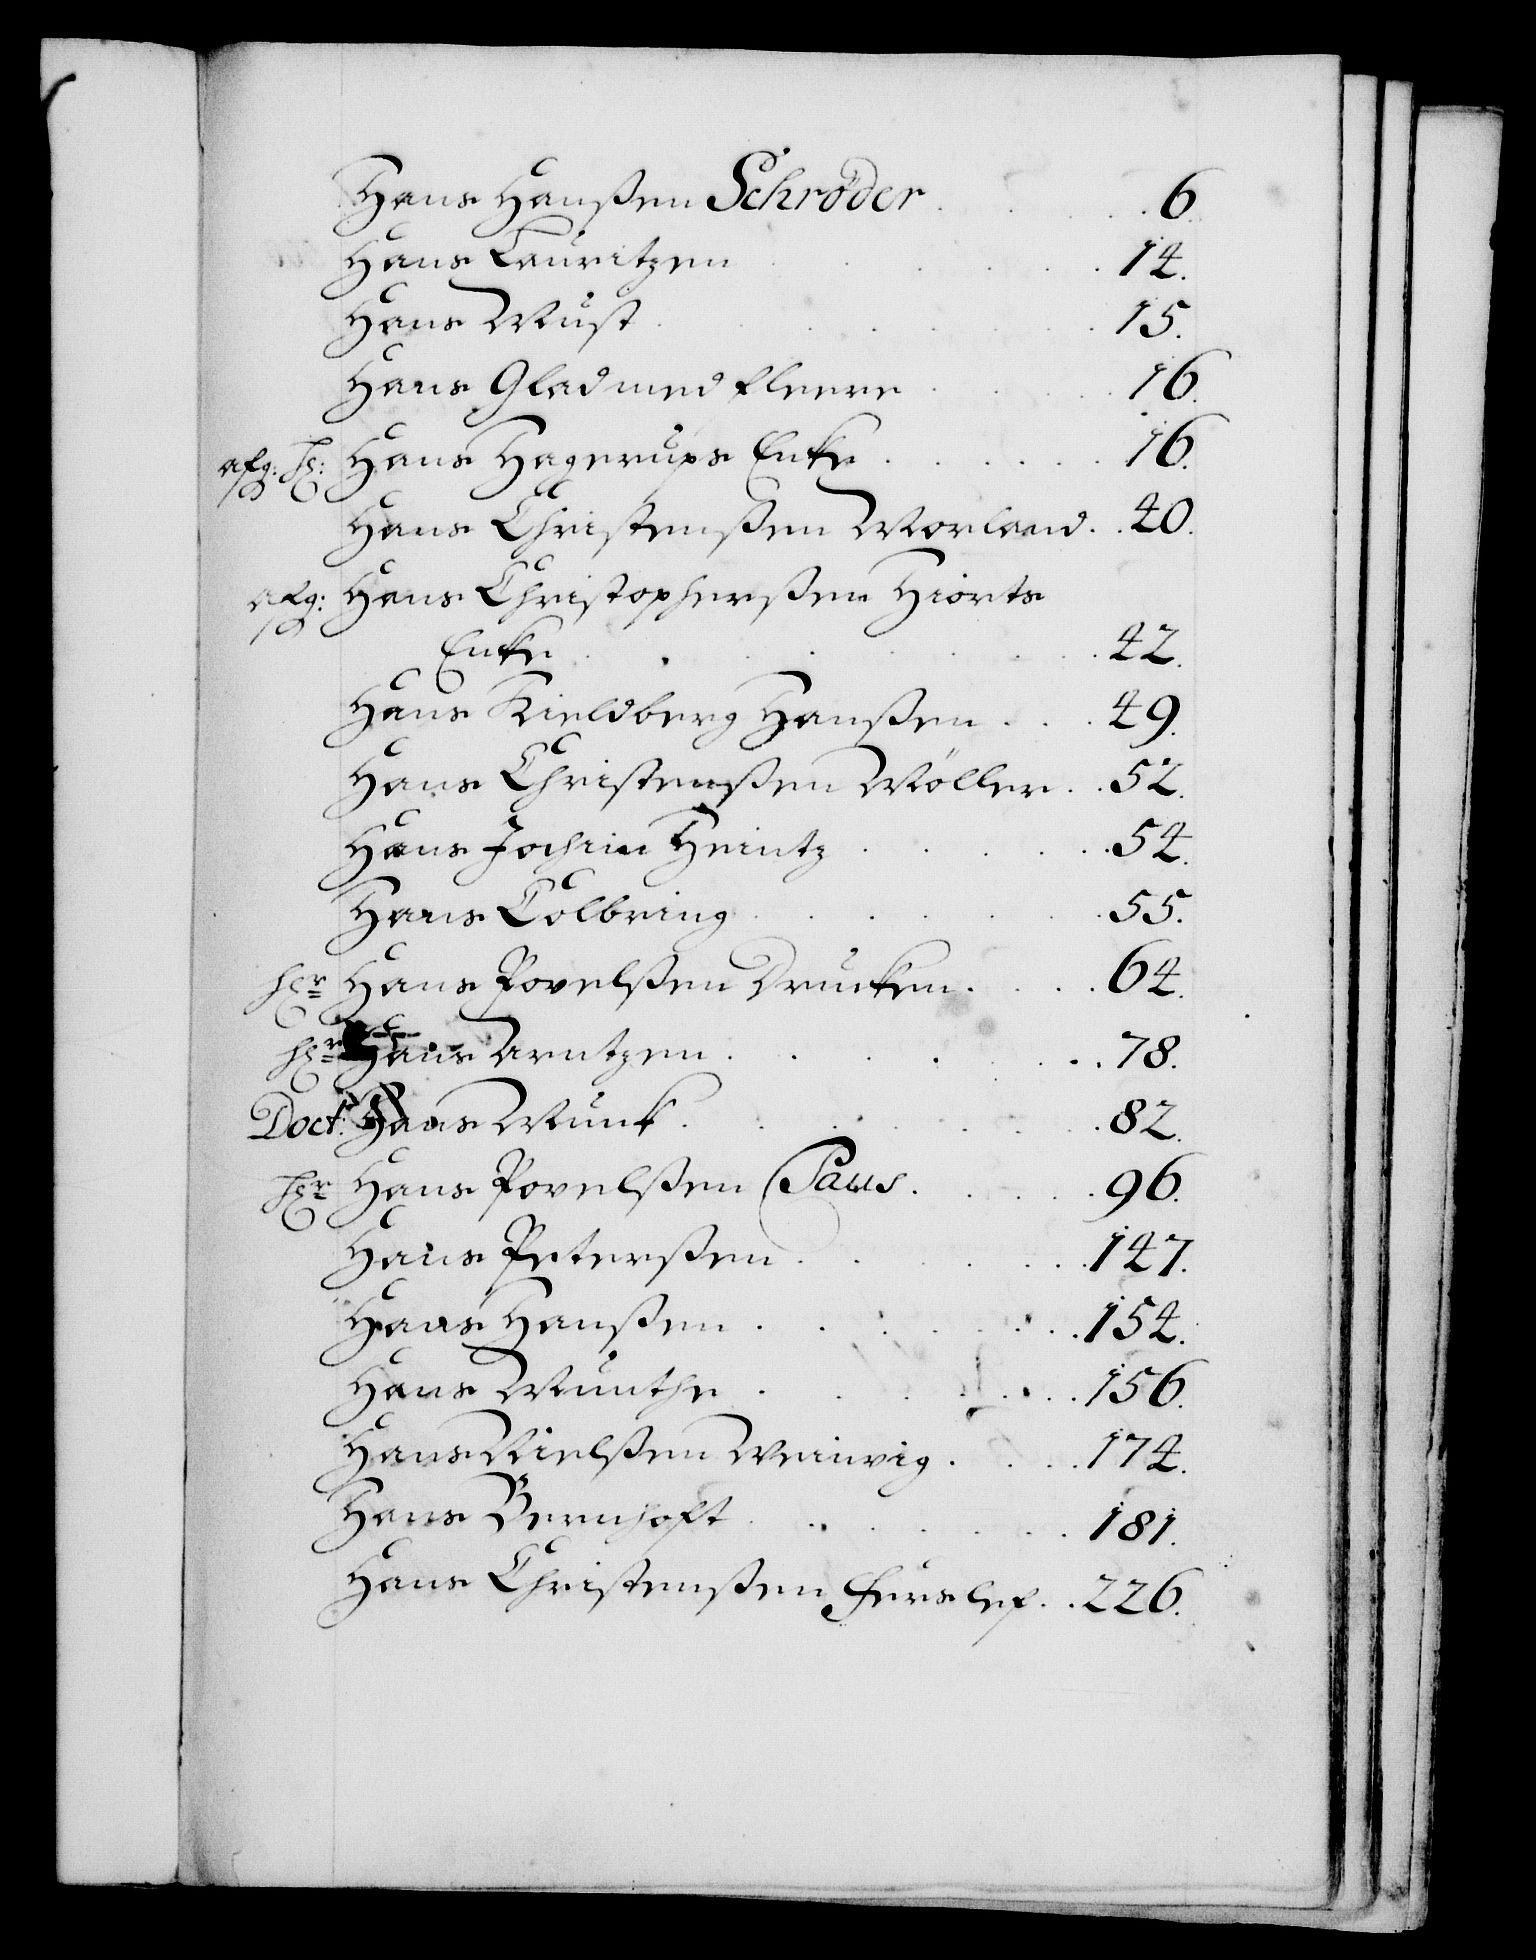 Hans Hanßen Schrøder . . . . 6.
Hans Lauritzen . . . . . . 14.
Hans Must . . . . . . . 15.
Hans Glad med fleere . . . . 16.
afg: Hr: Hans Hagerups Enke . . . . . 16.
Hans Christenßen Morland . . 40.
afg: Hans Christopherßen Hiorts
Enke . . . . . . . . 42.
Hans Kieldberg Hanßen . . . 49.
Hans Christenßen Möller . . 52.
Hans Jochim Heintz . . . . . 54.
Hans Colbring . . . . . . 55.
Hr Hans Povelßen Drucken . . . . 64.
Hr Hans Arntzen . . . . . . 78.
Doct: Hans Munk . . . . . . 82.
Hr Hans Povelßen Paus . . . . . 96.
Hans Peterßen . . . . . . 147.
Hans Hanßen . . . . . . . 154.
Hans Munthe . . . . . . . 156.
Hans Nielßen Meinvig . . . . 174.
Hans Bernhoft . . . . . . . 181.
Hans Christenßen Ferslef . . 226.